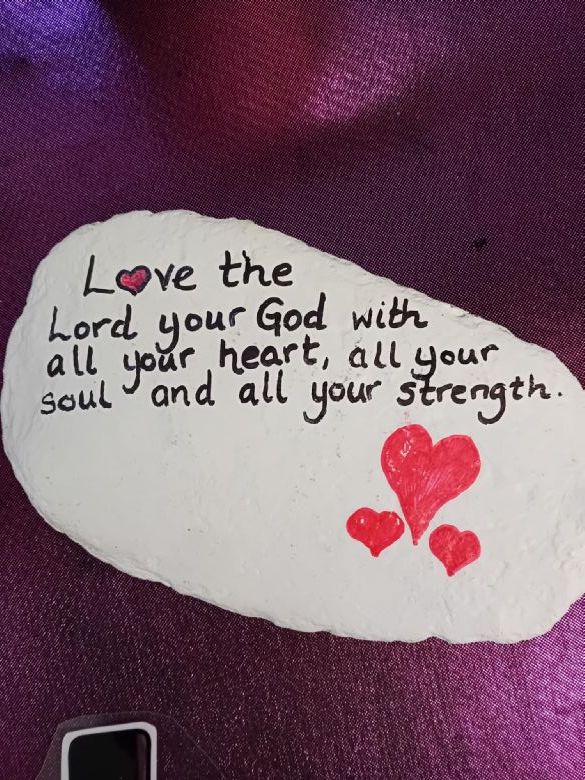 Love the
Lord your God with
all your heart, all your
soul and all your strength.